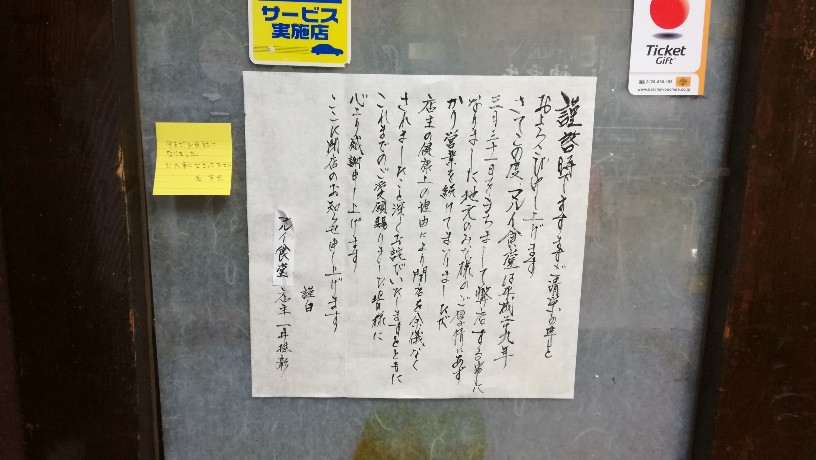 サービス
実施店
Ticket
Gift
謹啓 時下ますますご清栄の事と
およろこび申し上げます
さてこの度、マルイ食堂は平成二十九年
三月三十一日をもちまして弊店する事に
なりました 地元のみな様のご厚情にあず
かり営業を続けてまいりましたが
店主の健康上の理由により閉店を余儀なく
されました事を深くお詫びいたしますとともに
これまでのご愛顧賜りました皆様に
心より感謝申し上げます
ここに閉店のお知らせ申し上げます
謹白
マルイ食堂 店主 一井
なりました